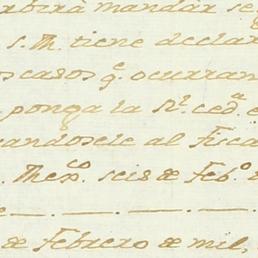 mandar se
S. M. tiene declar
os casos q.e ocurran
ponga la R.l ced.a e
andosele al Fisca
. Theso.co seis de Feb.o d
de Febrero de mil,